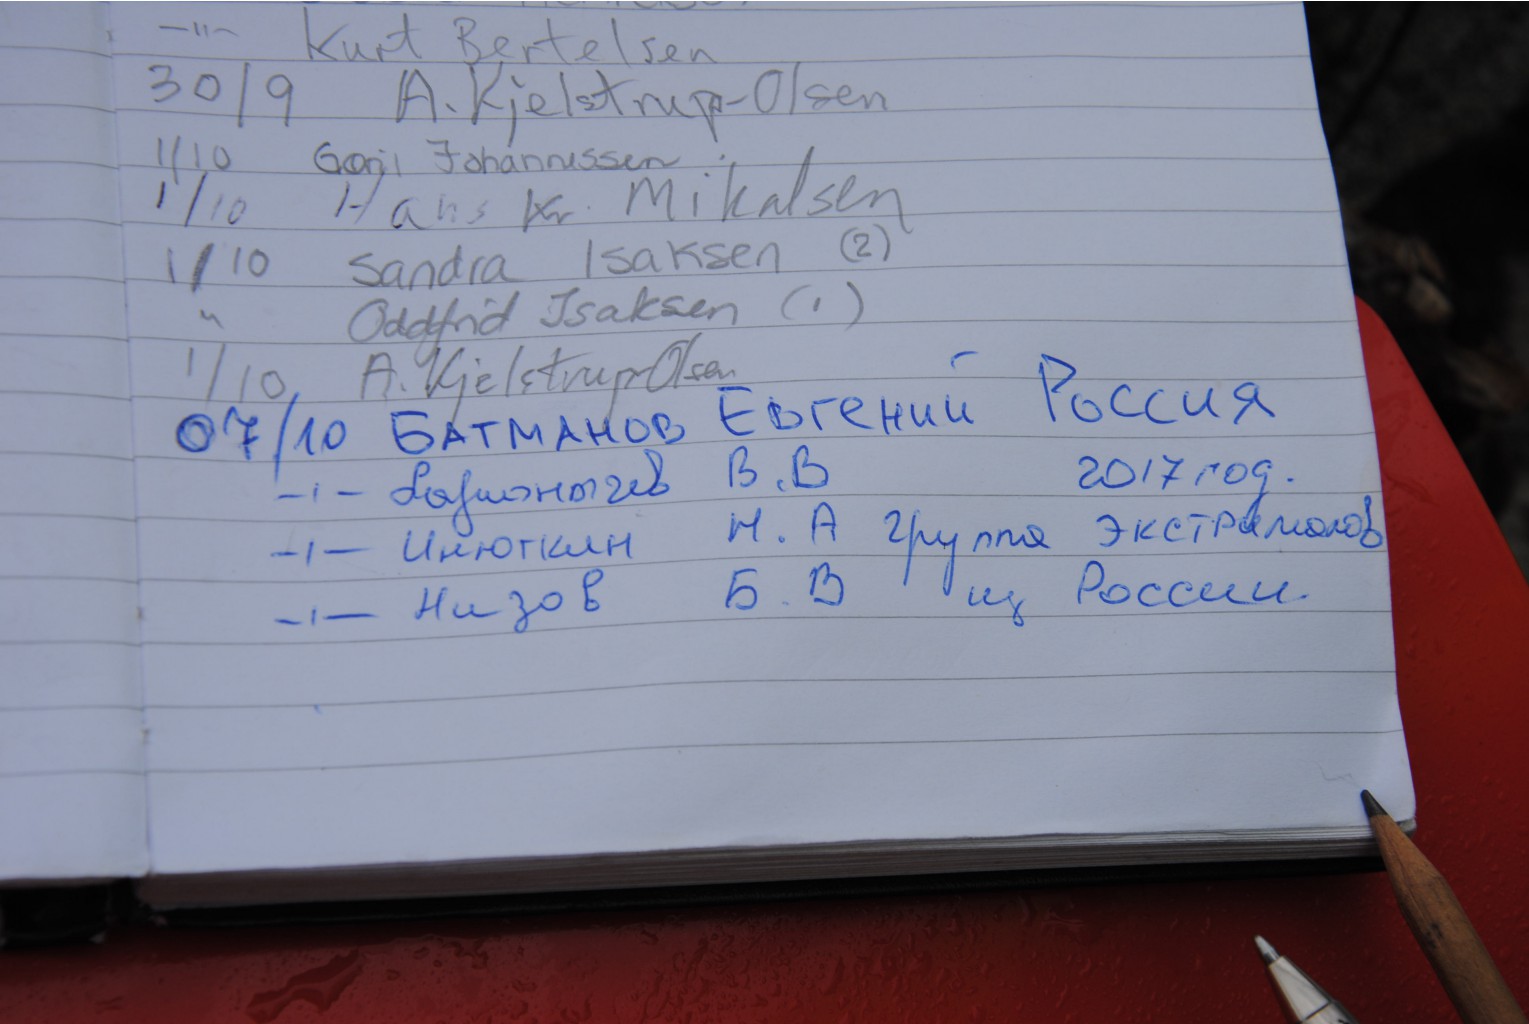 -"- Kurt Bertelsen
30/9 A. Kjelstrup-Olsen
1/10 Johannessen
1/10 Hans Kr. Mikalsen
1/10 Sandra Isaksen (2)
" Oddfrid Isaksen (1)
1/10 A. Kjelstrup-Olsen
07/10 БАТМАНОВ ЕВГЕНИЙ РОССИЯ
-ı- В.В 2017 год.
-ı- Инюткин Н.А группа экстрамалов
-ı- Низов Б.В из России.